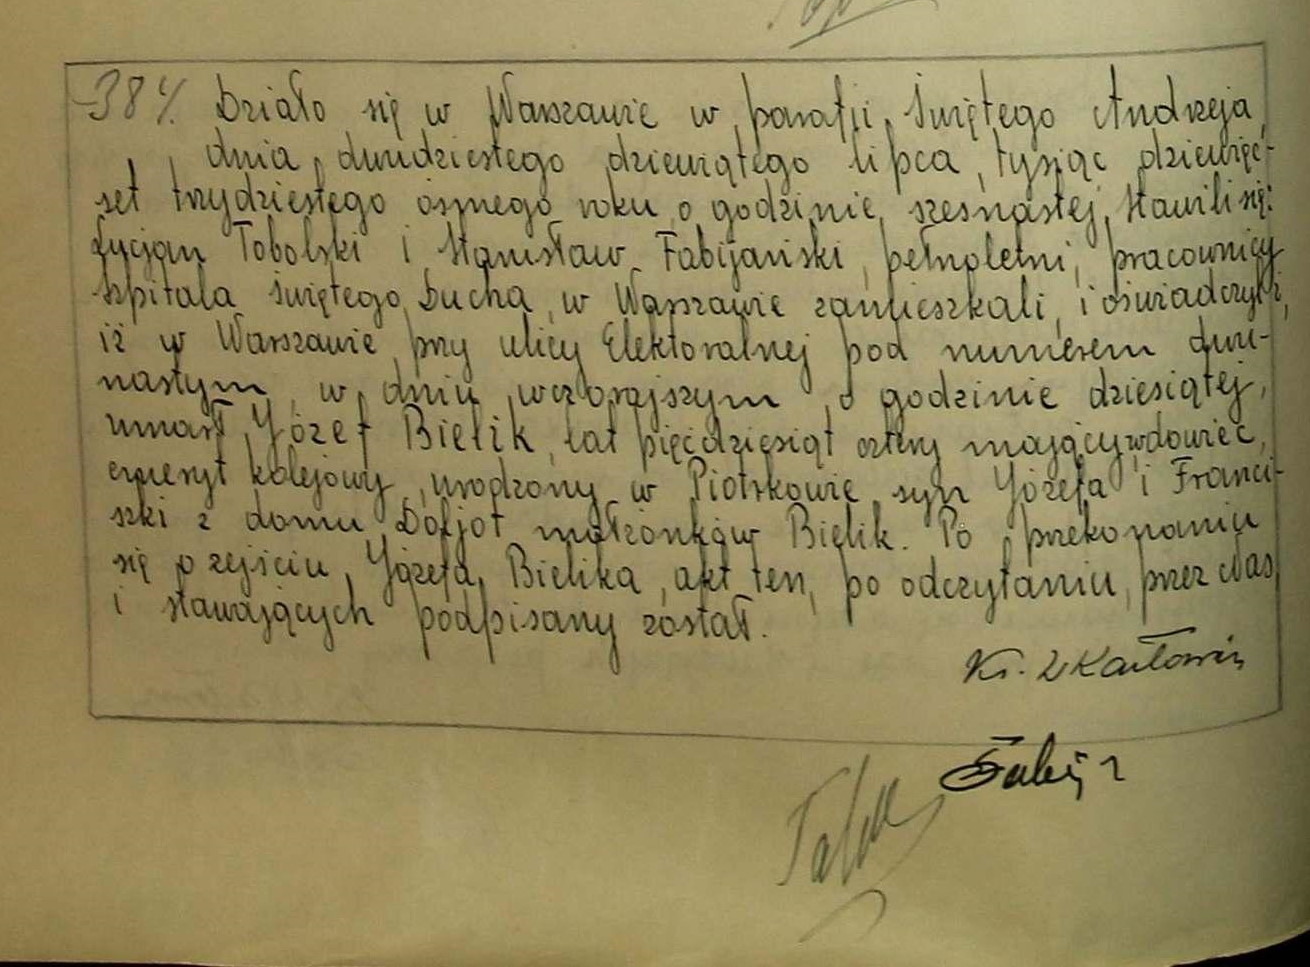 384. Działo się w Warszawie w parafji Świętego Andrzeja,
dnia dwudziestego dziewiątego lipca, tysiąc dziewięć-
set trzydziestego ósmego roku o godzinie szesnastej. Stawili się:
Lucjan Tobolski i Stanisław Fabijański, pełnoletni, pracownicy
szpitala świętego Ducha, w Warszawie zamieszkali, i oświadczyli,
iż w Warszawie przy ulicy Elektoralnej pod numerem dwu-
nastym, w dniu wczorajszym o godzinie dziesiątej,
umarł Józef Bielik, lat pięćdziesiąt cztery mający, wdowiec,
emeryt kolejowy, urodzony w Piotrkowie, syn Józefa i Franci-
szki z domu małżonków Bielik. Po przekonaniu
się o zejściu Józefa Bielika, akt ten, po odczytaniu, przez Nas
i stawających podpisany został.